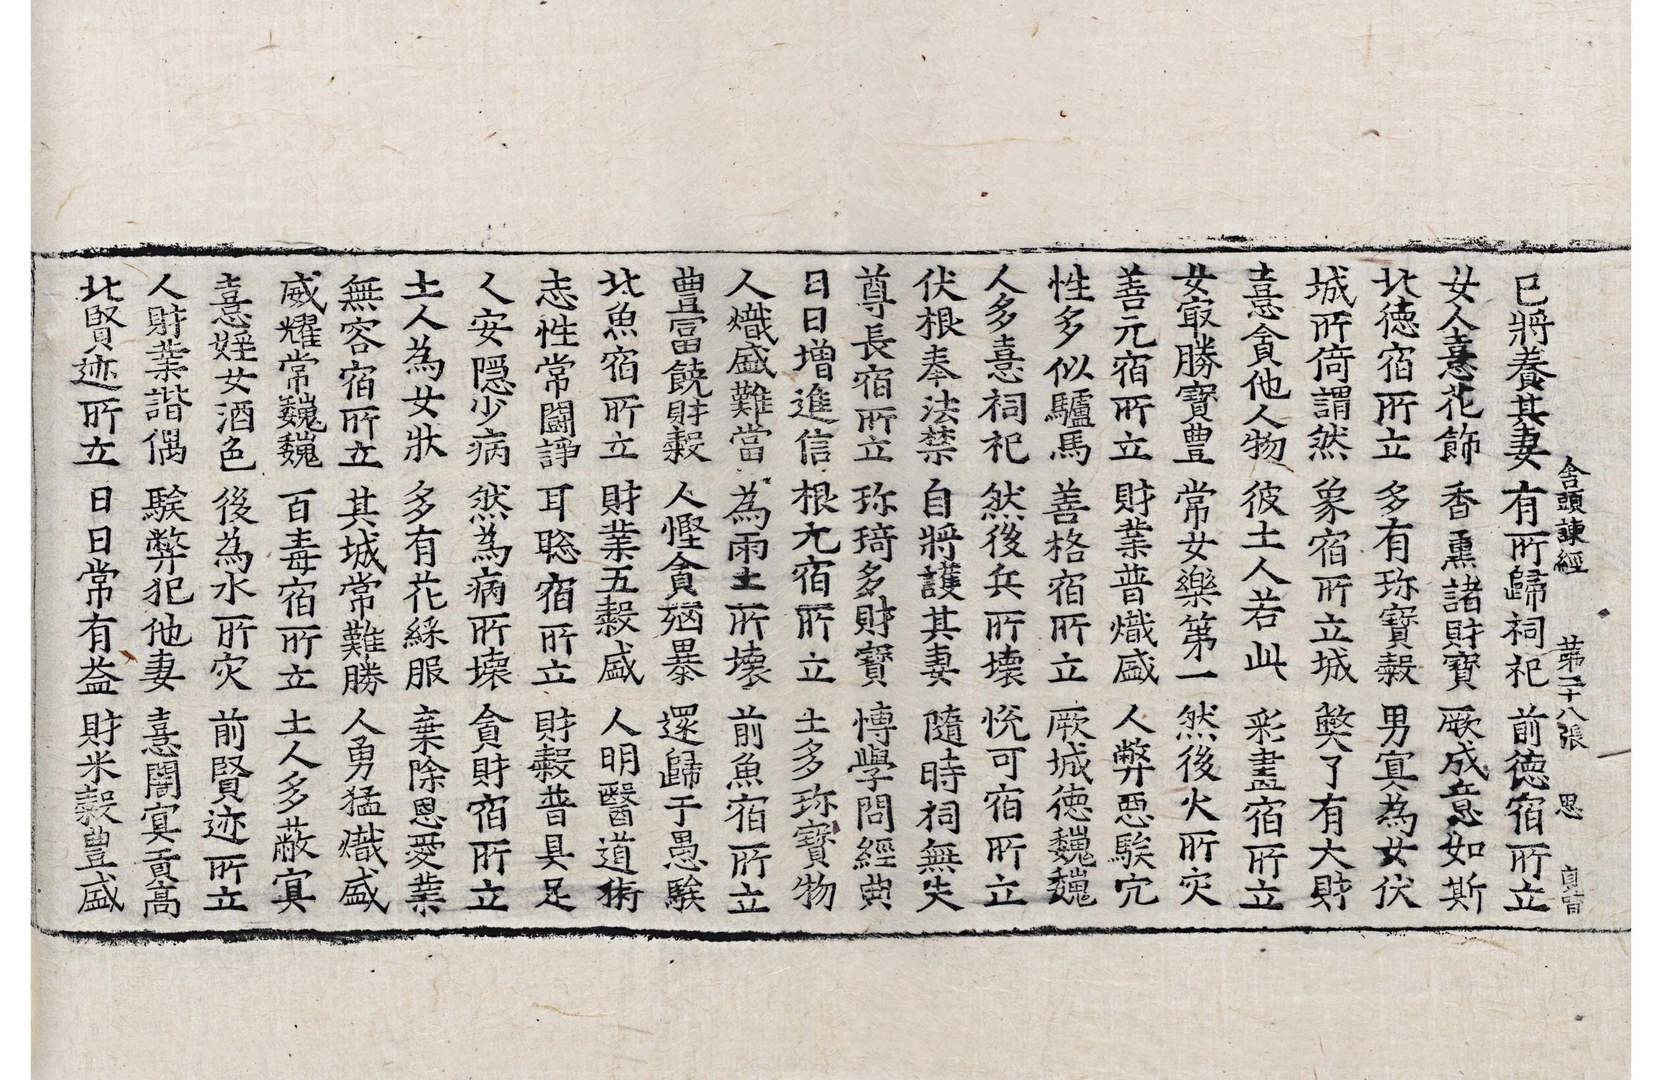 舍頭諫經　第二十八張　思
已將養其妻　有所歸祠祀　前德宿所立
女人憙花飾　香熏諸財寶　厥成意如斯
北德宿所立　多有珎寶穀　男寞為女伏
城所倚謂然　象宿所立城　奬了有大財
憙貪他人物　彼土人若此　彩畫宿所立
女㝡勝寶豊　常女樂第一　然後火所灾
善元宿所立　財業普熾盛　人弊惡騃宂
性多似驢馬　善格宿所立　厥城德巍巍
人多憙祠祀　然後兵所壞　悅可宿所立
伏根奉法禁　自將護其妻　隨時祠無失
尊長宿所立　珎琦多財寶　愽學問經典
日日增進信　根元宿所立　土多珎寶物
人熾盛難當　為雨土所壞　前魚宿所立
豊富饒財穀　人慳貪𣧑暴　還歸于愚騃
北魚宿所立　財業五穀盛　人明醫道術
志性常鬪諍　耳聡宿所立　財穀普具足
人安隠少病　然為病所壞　貪財宿所立
土人為女狀　多有花綵服　棄除恩愛業
無容宿所立　其城常難勝　人勇猛熾盛
威耀常巍巍　百毒宿所立　土人多蔽寞
憙婬女酒色　後為水所灾　前賢迹所立
人財業諧偶　騃弊犯他妻　憙闇寞貢高
北賢迹所立　日日常有益　財米穀豊盛